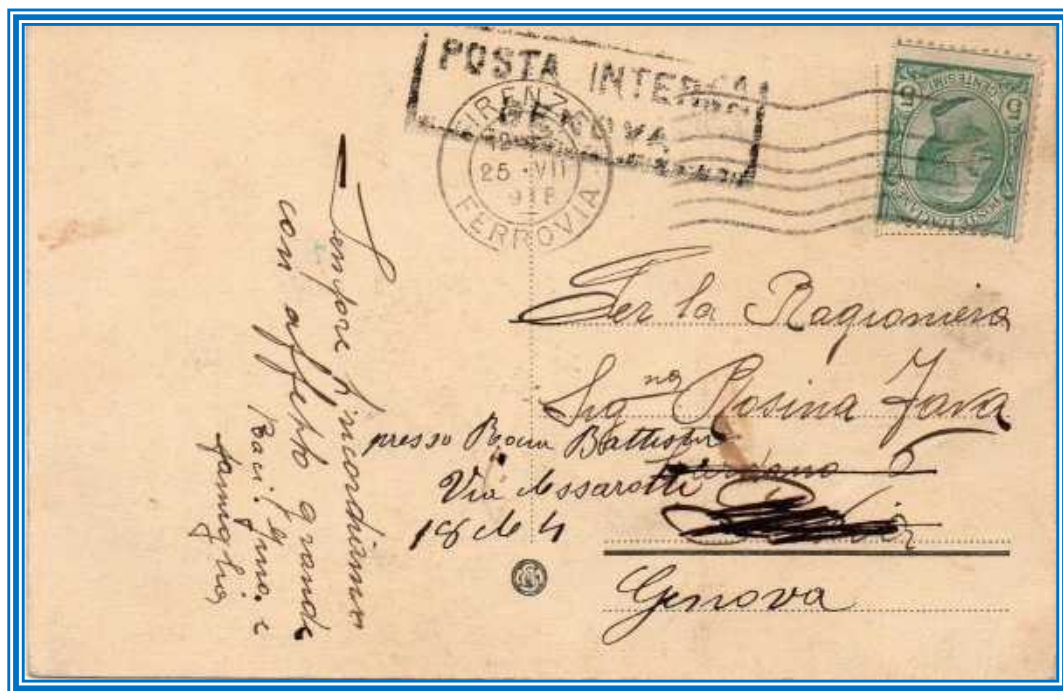 POSTA INTERNA
GENOVA
FIRENZE
12
25 · VII
918
FERROVIA
5 CENTESIMI 5
POSTE ITALIANE
Sempre ti ricordiamo
con affetto grande
Baci. Gma. e
famiglia
Per la Ragioniera
Sigⁿᵃ Rosina Fava
presso Battista
Via Assarotti
18 4
Genova